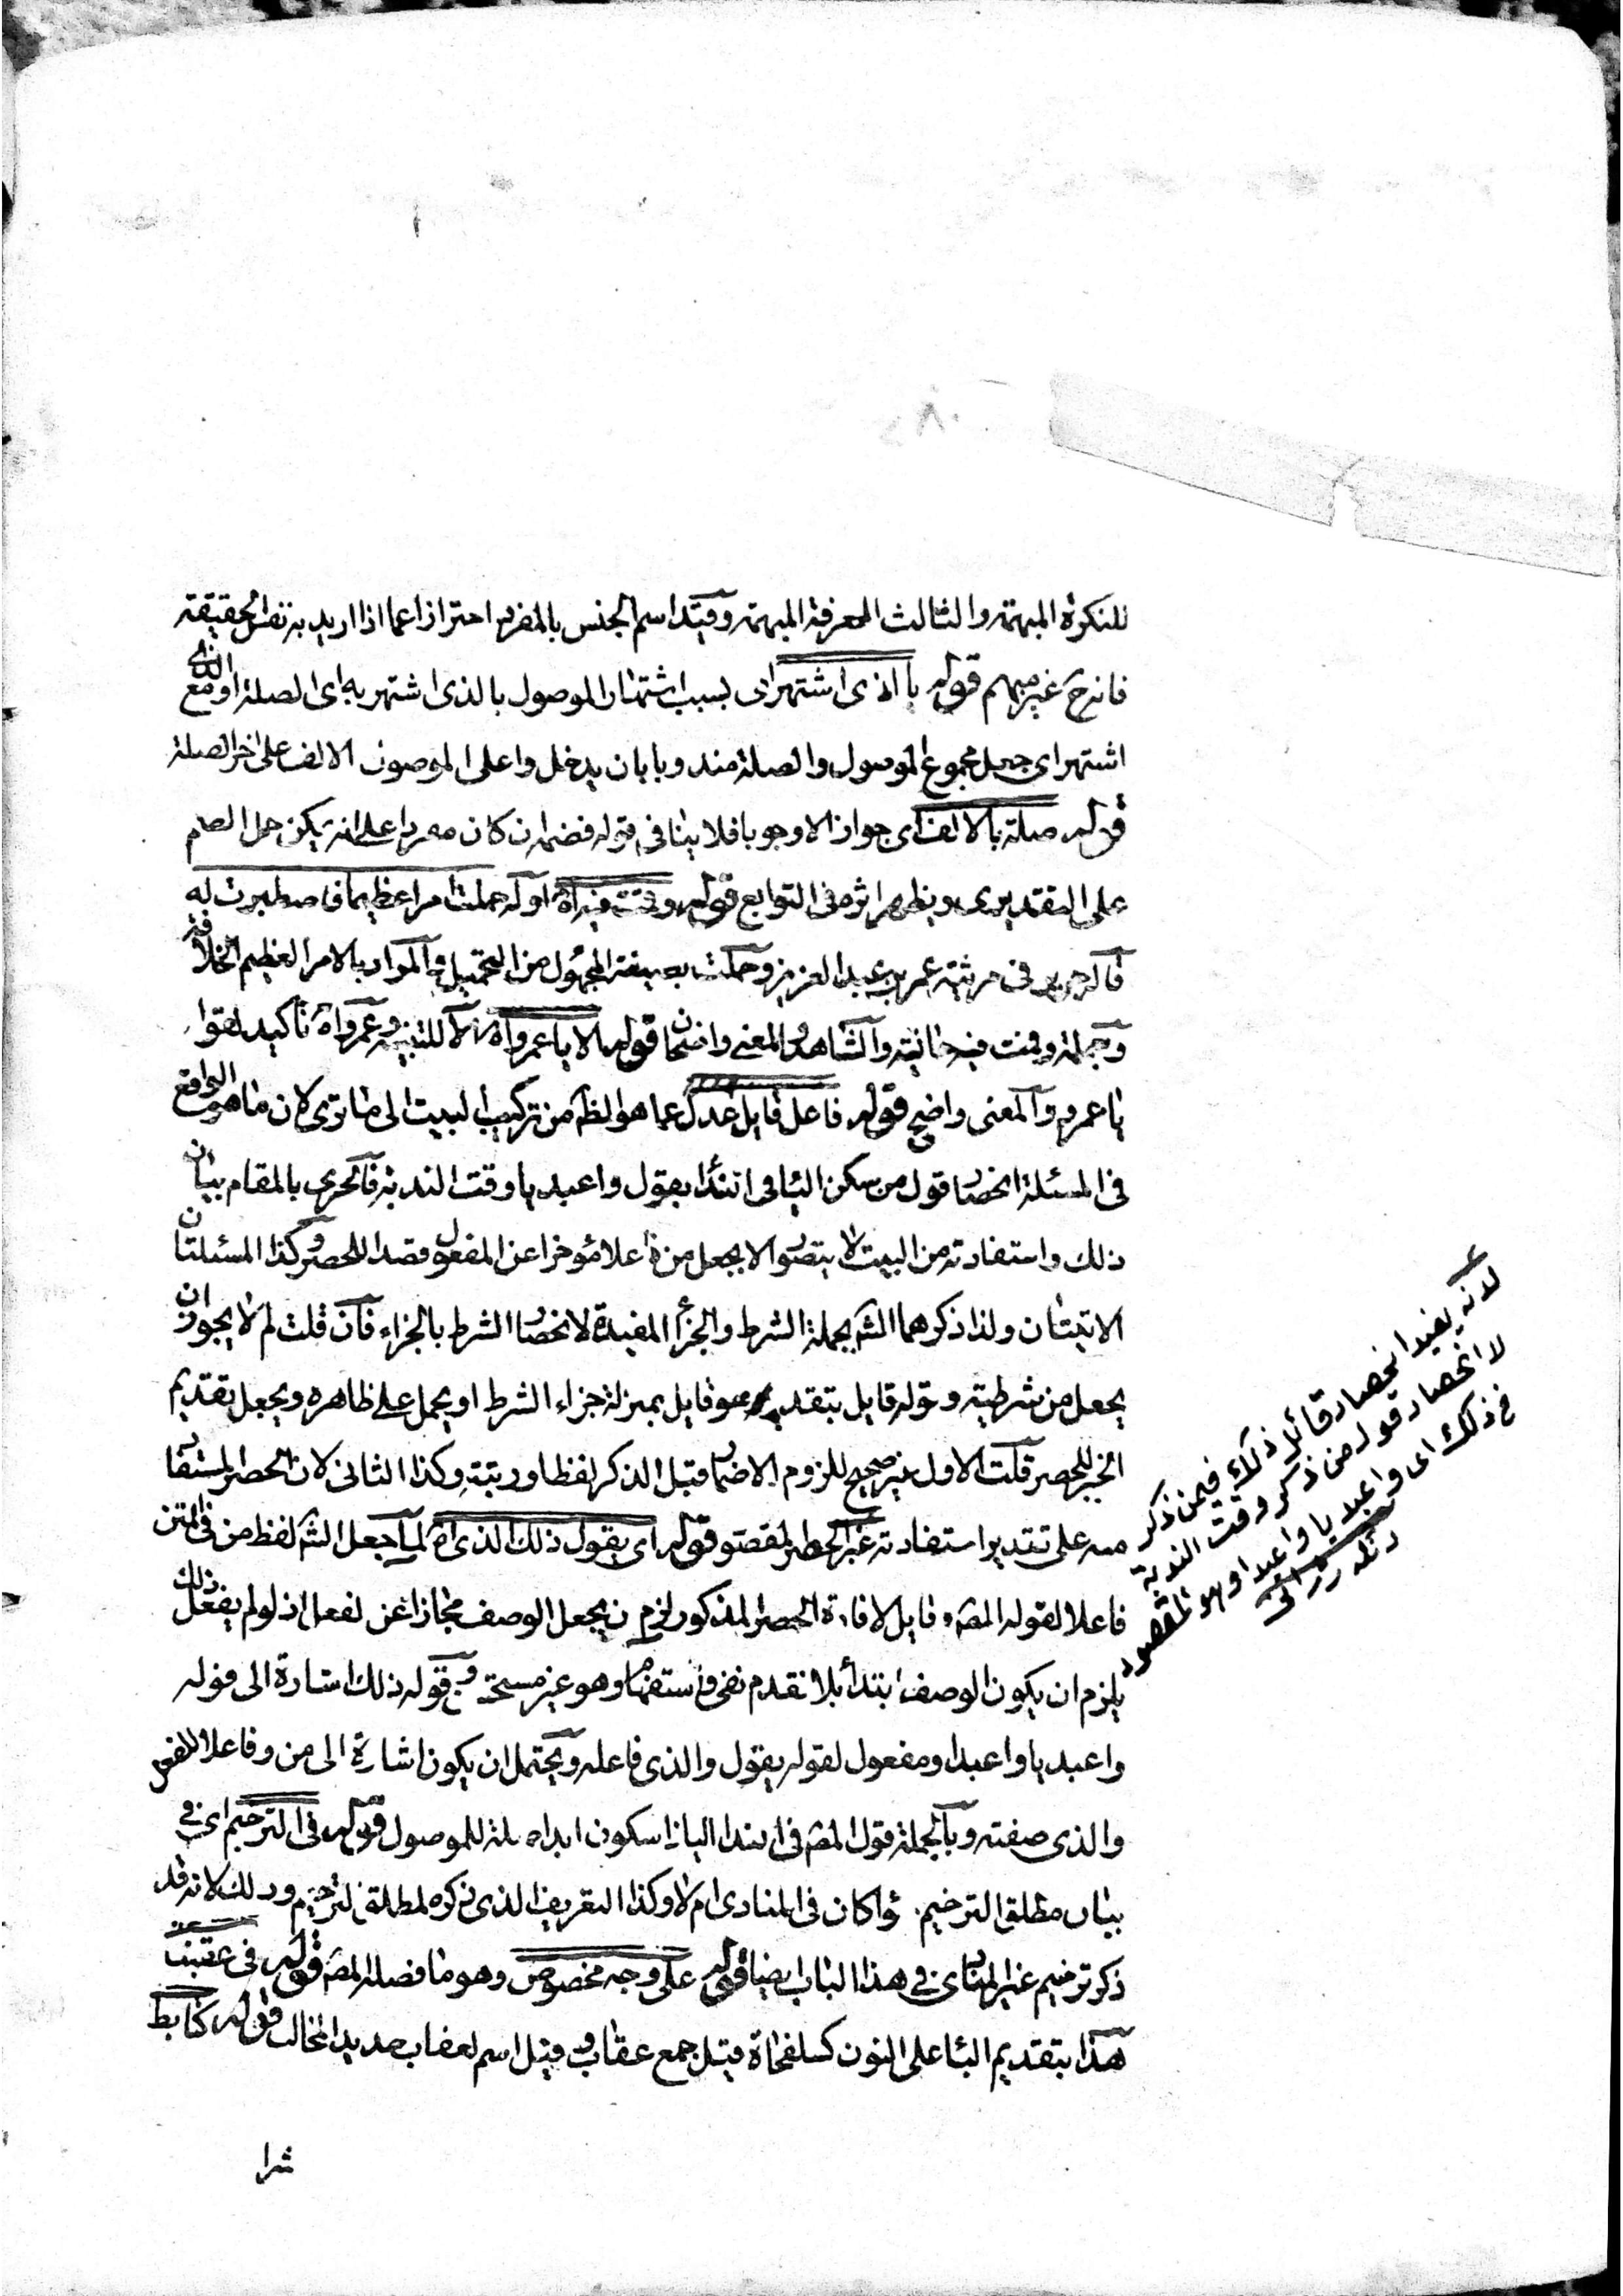 للنكرة المبهمة والثالث المعرفة المبهمة وقيد اسم الجنس بالمفرد احترازا عما اذا اريد به نفس الحقيقة
فانه ح غير مبهم قوله بالذى اشتهر اى بسبب اشتهار الموصول بالذى اشتهر به اى الصلة او مع الذى
اشتهر اى جعل مجموع الموصول والصلة مندوبا بان يدخل وا على الموصول الالف على اخر الصلة
قوله صلته بالالف اى جوازا لا وجوبا فلا ينافى قوله فضمه ان كان معربا على انه يكن حمل الضم
على التقديرى ويظهر اثره فى التوابع قوله وقمت فيه اه اوله حملت امرا عظيما فاصطبرت له
قاله جرير فى مرثية عمر بن عبد العزيز وحملت بصيغة المجهول من التحميل والمراد بالامر العظيم الخلافة
وجملة وقمت فيه حالية والشاهد والمعنى واضحان قوله الا يا عمرواه الا للتنبيه وعمرواه تاكيد لقوله
يا عمرو والمعنى واضح قوله فاعل قايل عدل عما هو الظ من تركيب البيت الى ما ترى لان ما هو الواقع
فى المسئلة انحصار قول من سكن اليا فى الندا بقول وا عبديا وقت الندبة فالحرى بالمقام بيان
ذلك واستفادته من البيت لا يتصور الا بجعل من فاعلا مؤخرا عن المفعول قصدا للحصر وكذا المسئلتان
الاتيتان ولذا ذكرهما الش بجملة الشرط والجزأ المفيدة لانحصار الشرط بالجزاء فان قلت لم لا يجوز ان
يجعل من شرطية وقوله قايل بتقدير هو قايل بمنزلة جزاء الشرط او يحمل على ظاهره ويجعل تقديم
الخبر للحصر قلت الاول غير صحيح للزوم الاضمار قبل الذكر لفظا ورتبة وكذا الثانى لان الحصر المستفاد
منه على تقدير استفادته غير الحصر المقصود قوله اى يقول ذلك الذى اه لما جعل الش لفظ من فى المتن
فاعلا لقوله المص وقايل لافادة الحصر المذكور لزم ان يجعل الوصف مجازا عن الفعل اذ لو لم يفعل ذلك
يلزم ان يكون الوصف ابتدأ بلا تقدم نفى او استفهام وهو غير مستحسن وقوله ذلك اشارة الى قوله
وا عبديا وا عبدا ومفعول لقوله يقول والذى فاعله ويحتمل ان يكون اشارة الى من وفاعلا للفعل
والذى صفته وبالجملة قول المص فى الندا اليا ذا سكون ابدا صلة للموصول قوله فى الترخيم اى فى
بيان مطلق الترخيم سواء كان فى المنادى ام لا وكذا التعريف الذى ذكره لمطلق الترخيم وذلك لانه قد
ذكر ترخيم غير المنادى فى هذا الباب ايضا قوله على وجه مخصوص وهو ما فصله المص قوله فى عقبنب
هذا بتقديم البا على النون كسلفحاة قيل جمع عقاب وقيل اسم لعقاب حديد المخالب قوله كتابط
شرا
لانه يفيد انحصار قائل ذلك فيمن ذكر
لا انحصار قول من ذكر وقت الندبة
فى ذلك اى وا عبديا وا عبدا وهو المقصود